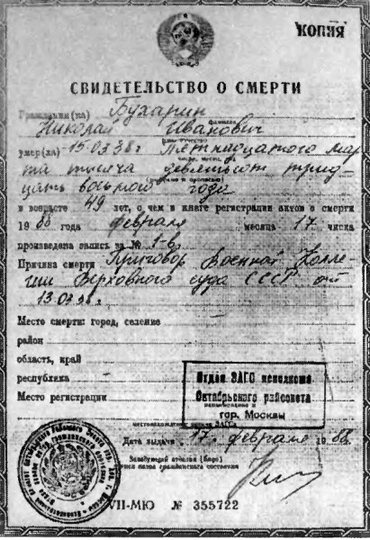 КОПИЯ
СВИДЕТЕЛЬСТВО О СМЕРТИ
Гражданин(ка) Бухарин
фамилия
Николай Иванович
умер(ла) 15.03.38 г Пятнадцатого мар
число, месяц, год
та тысяча девятьсот трид
цать восьмого года
в возрасте 49 лет, о чем в книге регистрации актов о смерти
19 88 года февраля месяца 17 числа
произведена запись за №
Причина смерти Приговор Военной Колле
гии Верховного суда СССР от
13.03.38
Место смерти: город, селение
район
область, край
республика
Место регистрации
Отдел ЗАГС исполкома
Октябрьского райсовета
гор. Москвы
Дата выдачи 17. февраля 1988.
Заведующий отделом (бюро)
записи актов гражданского состояния
VII-МЮ № 355722